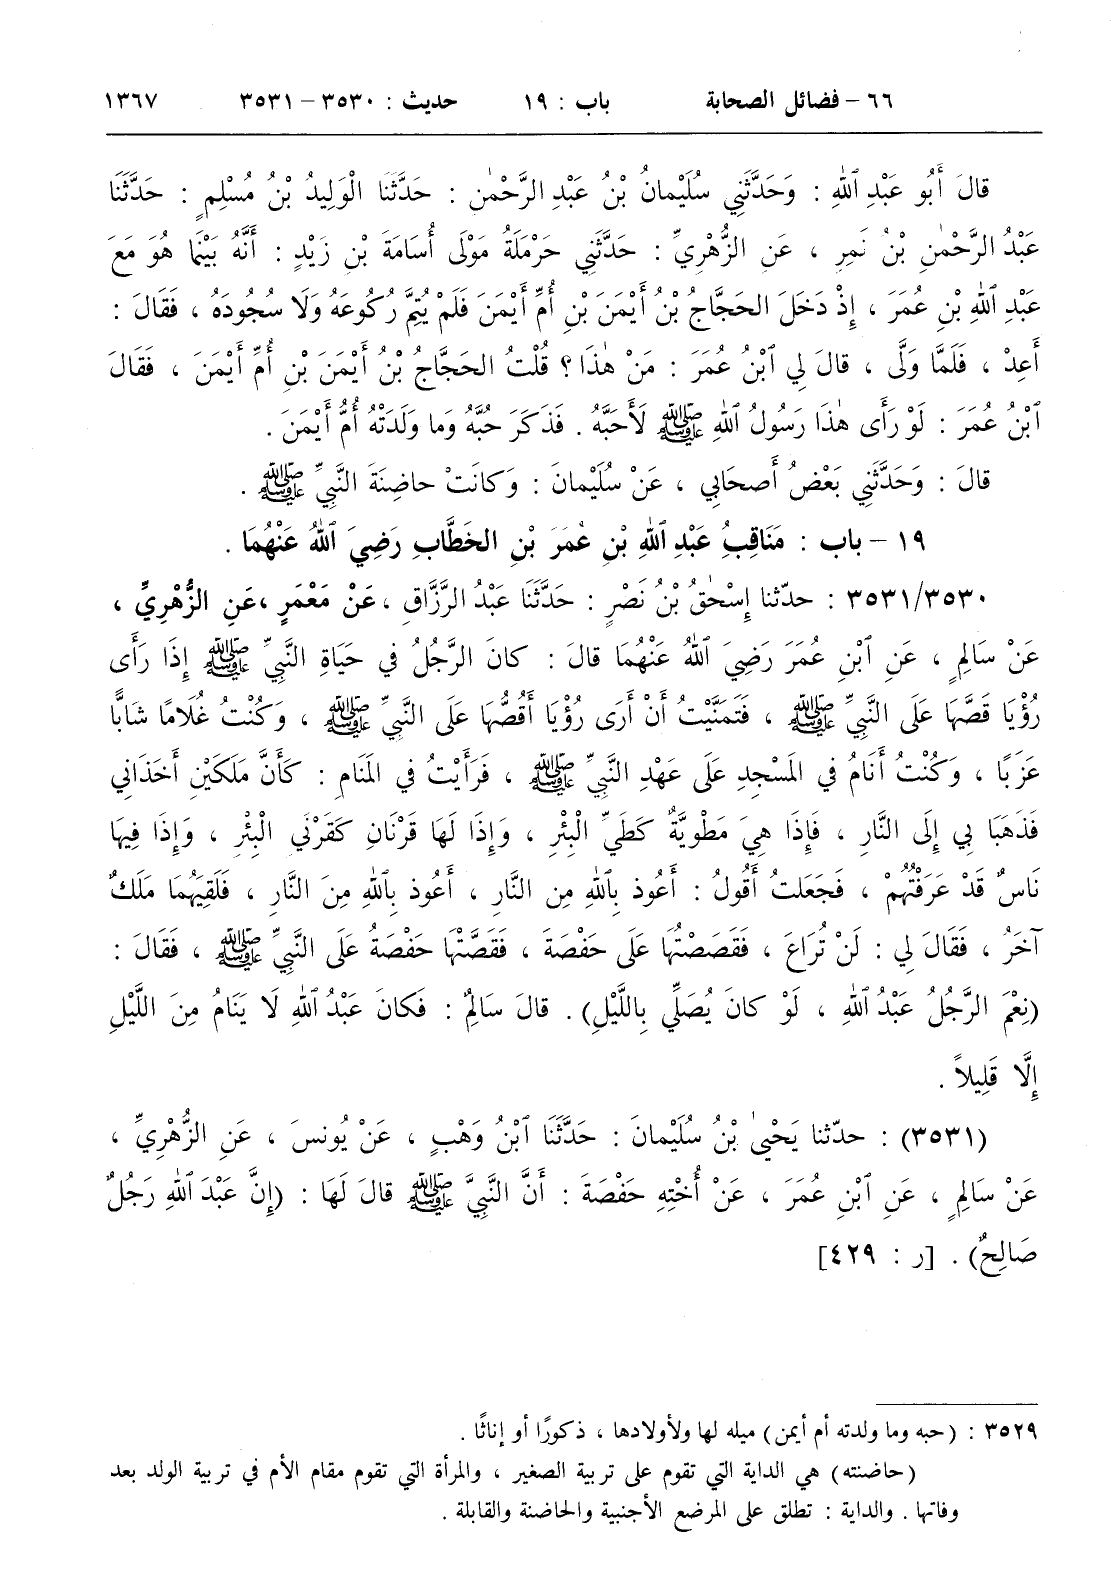 ٦٦ – فضائل الصحابة باب : ١٩ حديث : ٣٥٣٠ – ٣٥٣١ ١٣٦٧
قالَ أَبُو عَبْدِ ٱللهِ : وَحَدَّثَنِي سُلَيْمانُ بْنُ عَبْدِ الرَّحْمٰنِ : حَدَّثَنَا الْوَلِيدُ بْنُ مُسْلِمٍ : حَدَّثَنَا
عَبْدُ الرَّحْمٰنِ بْنُ نَمِرٍ ، عَنِ الزُّهْرِيِّ : حَدَّثَنِي حَرْمَلَةُ مَوْلَى أُسَامَةَ بْنِ زَيْدٍ : أَنَّهُ بَيْنَما هُوَ مَعَ
عَبْدِ ٱللهِ بْنِ عُمَرَ ، إِذْ دَخَلَ الحَجَّاجُ بْنُ أَيْمَنَ بْنِ أُمِّ أَيْمَنَ فَلَمْ يُتِمَّ رُكُوعَهُ وَلَا سُجُودَهُ ، فَقَالَ :
أَعِدْ ، فَلَمَّا وَلَّى ، قالَ لِي ٱبْنُ عُمَرَ : مَنْ هٰذَا ؟ قُلْتُ الحَجَّاجُ بْنُ أَيْمَنَ بْنِ أُمِّ أَيْمَنَ ، فَقَالَ
ٱبْنُ عُمَرَ : لَوْ رَأَى هٰذَا رَسُولُ ٱللهِ ﷺ لَأَحَبَّهُ . فَذَكَرَ حُبَّهُ وَما وَلَدَتْهُ أُمُّ أَيْمَنَ .
قالَ : وَحَدَّثَنِي بَعْضُ أَصحَابِي ، عَنْ سُلَيْمانَ : وَكانَتْ حاضِنَةَ النَّبِيِّ ﷺ .
١٩ – باب : مَنَاقِبُ عَبْدِ ٱللهِ بْنِ عُمَرَ بْنِ الخَطَّابِ رَضِيَ ٱللهُ عَنْهُمَا .
٣٥٣١/٣٥٣٠ : حدّثنا إِسْحٰقُ بْنُ نَصْرٍ : حَدَّثَنَا عَبْدُ الرَّزَّاقِ ، عَنْ مَعْمَرٍ ، عَنِ الزُّهْرِيِّ ،
عَنْ سَالِمٍ ، عَنِ ٱبْنِ عُمَرَ رَضِيَ ٱللهُ عَنْهُمَا قالَ : كانَ الرَّجُلُ في حَيَاةِ النَّبِيِّ ﷺ إِذَا رَأَى
رُؤْيَا قَصَّهَا عَلَى النَّبِيِّ ﷺ ، فَتَمَنَّيْتُ أَنْ أَرَى رُؤْيَا أَقُصُّهَا عَلَى النَّبِيِّ ﷺ ، وَكُنْتُ غُلَامًا شَابًّا
عَزَبًا ، وَكُنْتُ أَنَامُ في المَسْجِدِ عَلَى عَهْدِ النَّبِيِّ ﷺ ، فَرَأَيْتُ في المَنَامِ : كَأَنَّ مَلَكَيْنِ أَخَذَانِي
فَذَهَبَا بِي إِلَى النَّارِ ، فَإِذَا هِيَ مَطْوِيَّةٌ كَطَيِّ الْبِئْرِ ، وَإِذَا لَهَا قَرْنَانِ كَقَرْنَيِ الْبِئْرِ ، وَإِذَا فِيهَا
نَاسٌ قَدْ عَرَفْتُهُمْ ، فَجَعَلتُ أَقُولُ : أَعُوذ بِٱللهِ مِن النَّارِ ، أَعُوذ بِٱللهِ مِنَ النَّارِ ، فَلَقِيَهُمَا مَلَكٌ
آخَرُ ، فَقَالَ لِي : لَنْ تُرَاعَ ، فَقَصَصْتُهَا عَلَى حَفْصَةَ ، فَقَصَّتْهَا حَفْصَةُ عَلَى النَّبِيِّ ﷺ ، فَقَالَ :
(نِعْمَ الرَّجُلُ عَبْدُ ٱللهِ ، لَوْ كانَ يُصَلِّي بِاللَّيْلِ) . قالَ سَالِمٌ : فَكانَ عَبْدُ ٱللهِ لَا يَنَامُ مِنَ اللَّيْلِ
إِلَّا قَلِيلاً .
(٣٥٣١) : حدّثنا يَحْيىٰ بْنُ سُلَيْمانَ : حَدَّثَنَا ٱبْنُ وَهْبٍ ، عَنْ يُونسَ ، عَنِ الزُّهْرِيِّ ،
عَنْ سَالِمٍ ، عَنِ ٱبْنِ عُمَرَ ، عَنْ أُخْتِهِ حَفْصَةَ : أَنَّ النَّبِيَّ ﷺ قالَ لَهَا : (إِنَّ عَبْدَ ٱللهِ رَجُلٌ
صَالِحٌ) . [ر : ٤٢٩]
٣٥٢٩ : (حبه وما ولدته أم أيمن) ميله لها ولأولادها ، ذكورًا أو إناثًا .
(حاضنته) هي الداية التي تقوم على تربية الصغير ، والمرأة التي تقوم مقام الأم في تربية الولد بعد
وفاتها . والداية : تطلق على المرضع الأجنبية والحاضنة والقابلة .